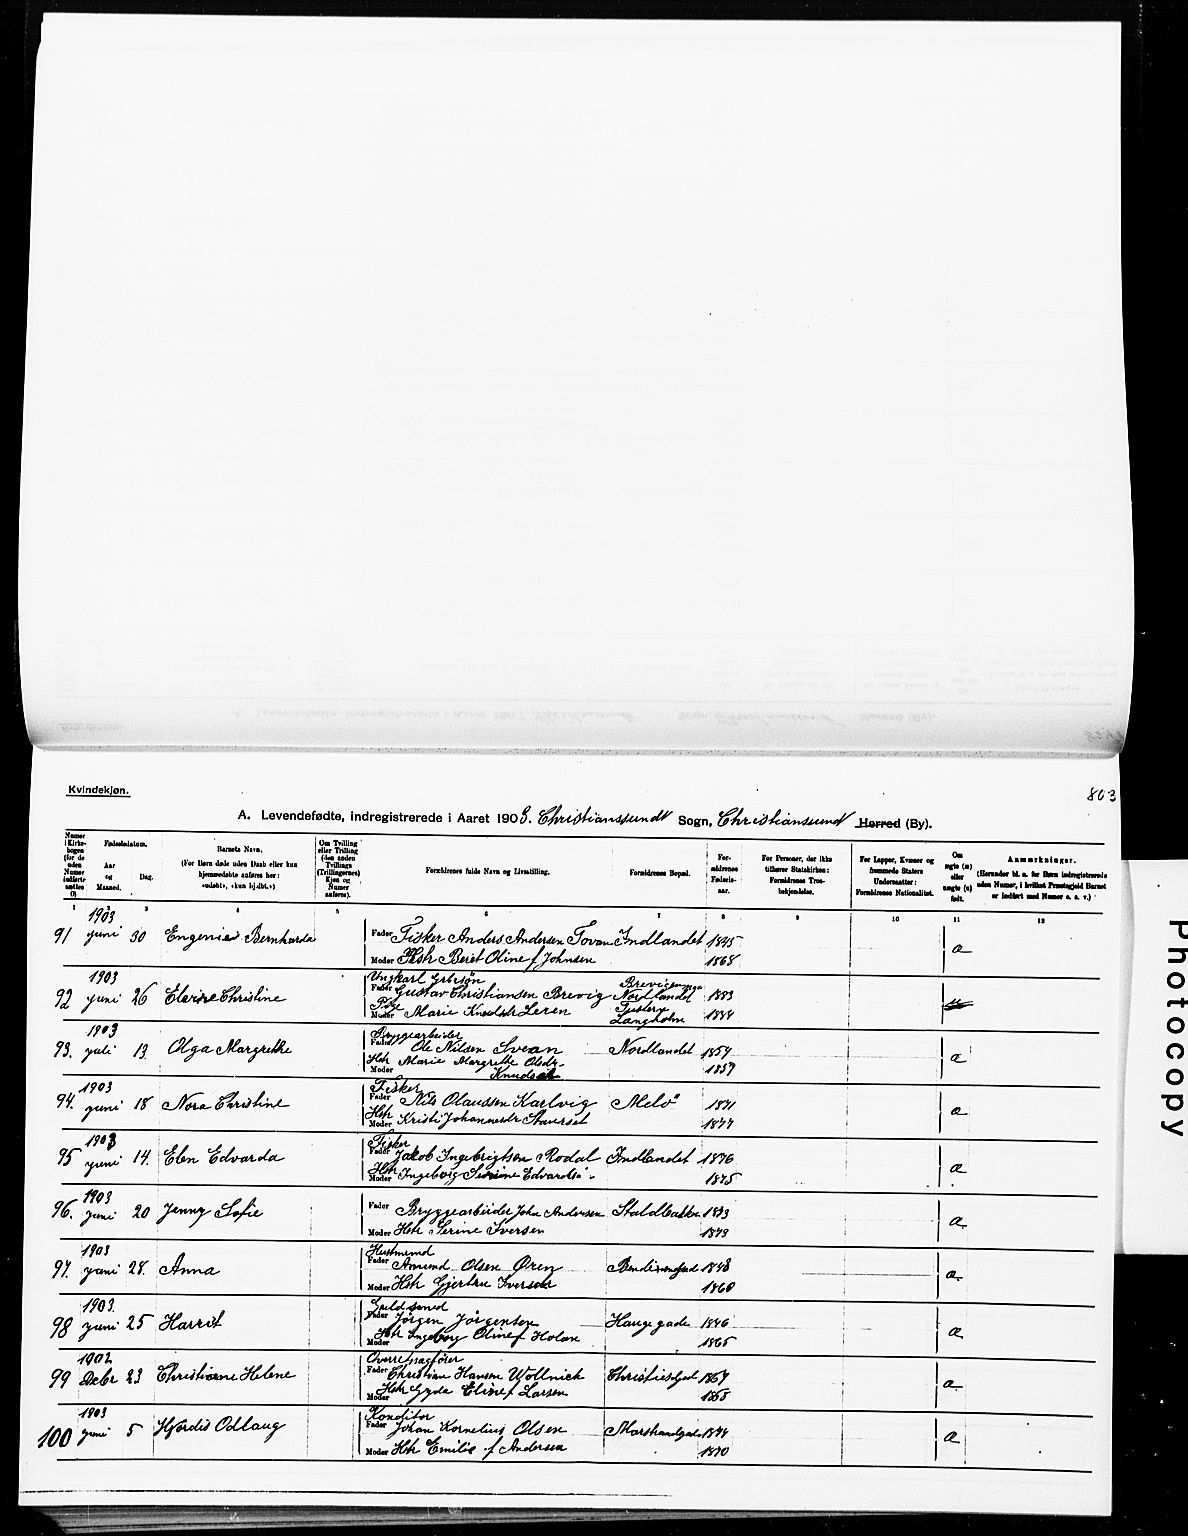 Kvindekjøn.
803
A. Levendefødte, indregistrerede i Aaret 1903. Christianssund Sogn, Christianssund Herred (By).
Numer i Kirkebogen (for de uden Numer indførte anføres 0)
Fødselsdatum.
Aar og Maaned.
Dag.
Barnets Navn.
(For Børn døde uden Daab eller kun hjemmedøbte anføres her: «udøbt», «kun hj.dbt.»)
Om Tvilling eller Trilling (den anden Tvillings (Trillingernes) Kjøn og Numer anføres).
Forældrenes fulde Navn og Livsstilling.
Forældrenes Bopæl.
Forældrenes Fødselsaar.
For Personer, der ikke tilhører Statskirken: Forældrenes Trosbekjendelse.
For Lapper, Kvæner og fremmede Staters Undersaatter: Forældrenes Nationalitet.
Om ægte (æ) eller uægte (u) født.
Anmærkninger.
(Herunder bl. a. for Børn indregistrerede uden Numer, i hvilket Præstegjeld Barnet er indført med Numer o. s. v.)
1 2 3 4 5 6 7 8 9 10 11 12
91 1903 juni 30 Bernharda Fader Fisker Anders Andersen Tovan Indlandet 1845 æ
Moder Hstr Beret Oline f Johnsen 1868
92 1903 juni 26 Christine Ungkarl
Fader Gustav Christiansen Brevig Nordlandet 1883
Pige
Moder Marie Leren 1884
93. 1903 juli 13 Olga Margrethe Bryggearbeider
Fader Ole Nilsen Svean Nordlandet 1854 æ
Hstr
Moder Marie Margrethe Olsdr 1857
94. 1903 juni 18 Nora Christine Fisker
Fader Nils Olaussen Karlvig Melø 1871 æ
Hstr
Moder Kristi Johannesdr 1877
95 1903 juni 14. Elen Edvarda Fisker
Fader Jakob Ingebrigtsen Rodal Indlandet 1876 æ
Hstr
Moder Ingeborg 1875
96. 1903 juni 20 Jenny Sofie Fader Bryggearbeider John Andersen Staldbakken 1873 æ
Moder Hstr Serine Iversen 1873
97. 1903 juni 28. Anna Husmand
Fader Amund Olsen Øren 1848 æ
Moder Hstr Gjertru 1860
98 1903. juni 25 Harrit Guldsmed
Fader Jørgen Jørgensen Haugegade 1846 æ
Moder Hstr Ingeborg Oline f Holan 1865
99 1902 Decbr 23 Christiane Helene Overretssagfører
Fader Christian Hansen Wollnick 1867 æ
Moder Hstr Gyda Elise f Larsen 1868
100 1903 juni 5 Hjørdis Odlaug Konditor
Fader Johan Kornelius Olsen 1874 æ
Moder Hstr Emilie f Andersen 1870
Photocopy